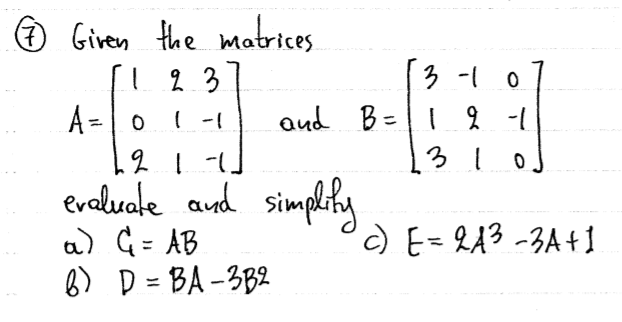 ⑦ Given the matrices
A = [1 2 3; 0 1 -1; 2 1 -1] and B = [3 -1 0; 1 2 -1; 3 1 0]
evaluate and simplify
a) G = AB
c) E = 2A³ - 3A + 1
b) D = BA - 3B2